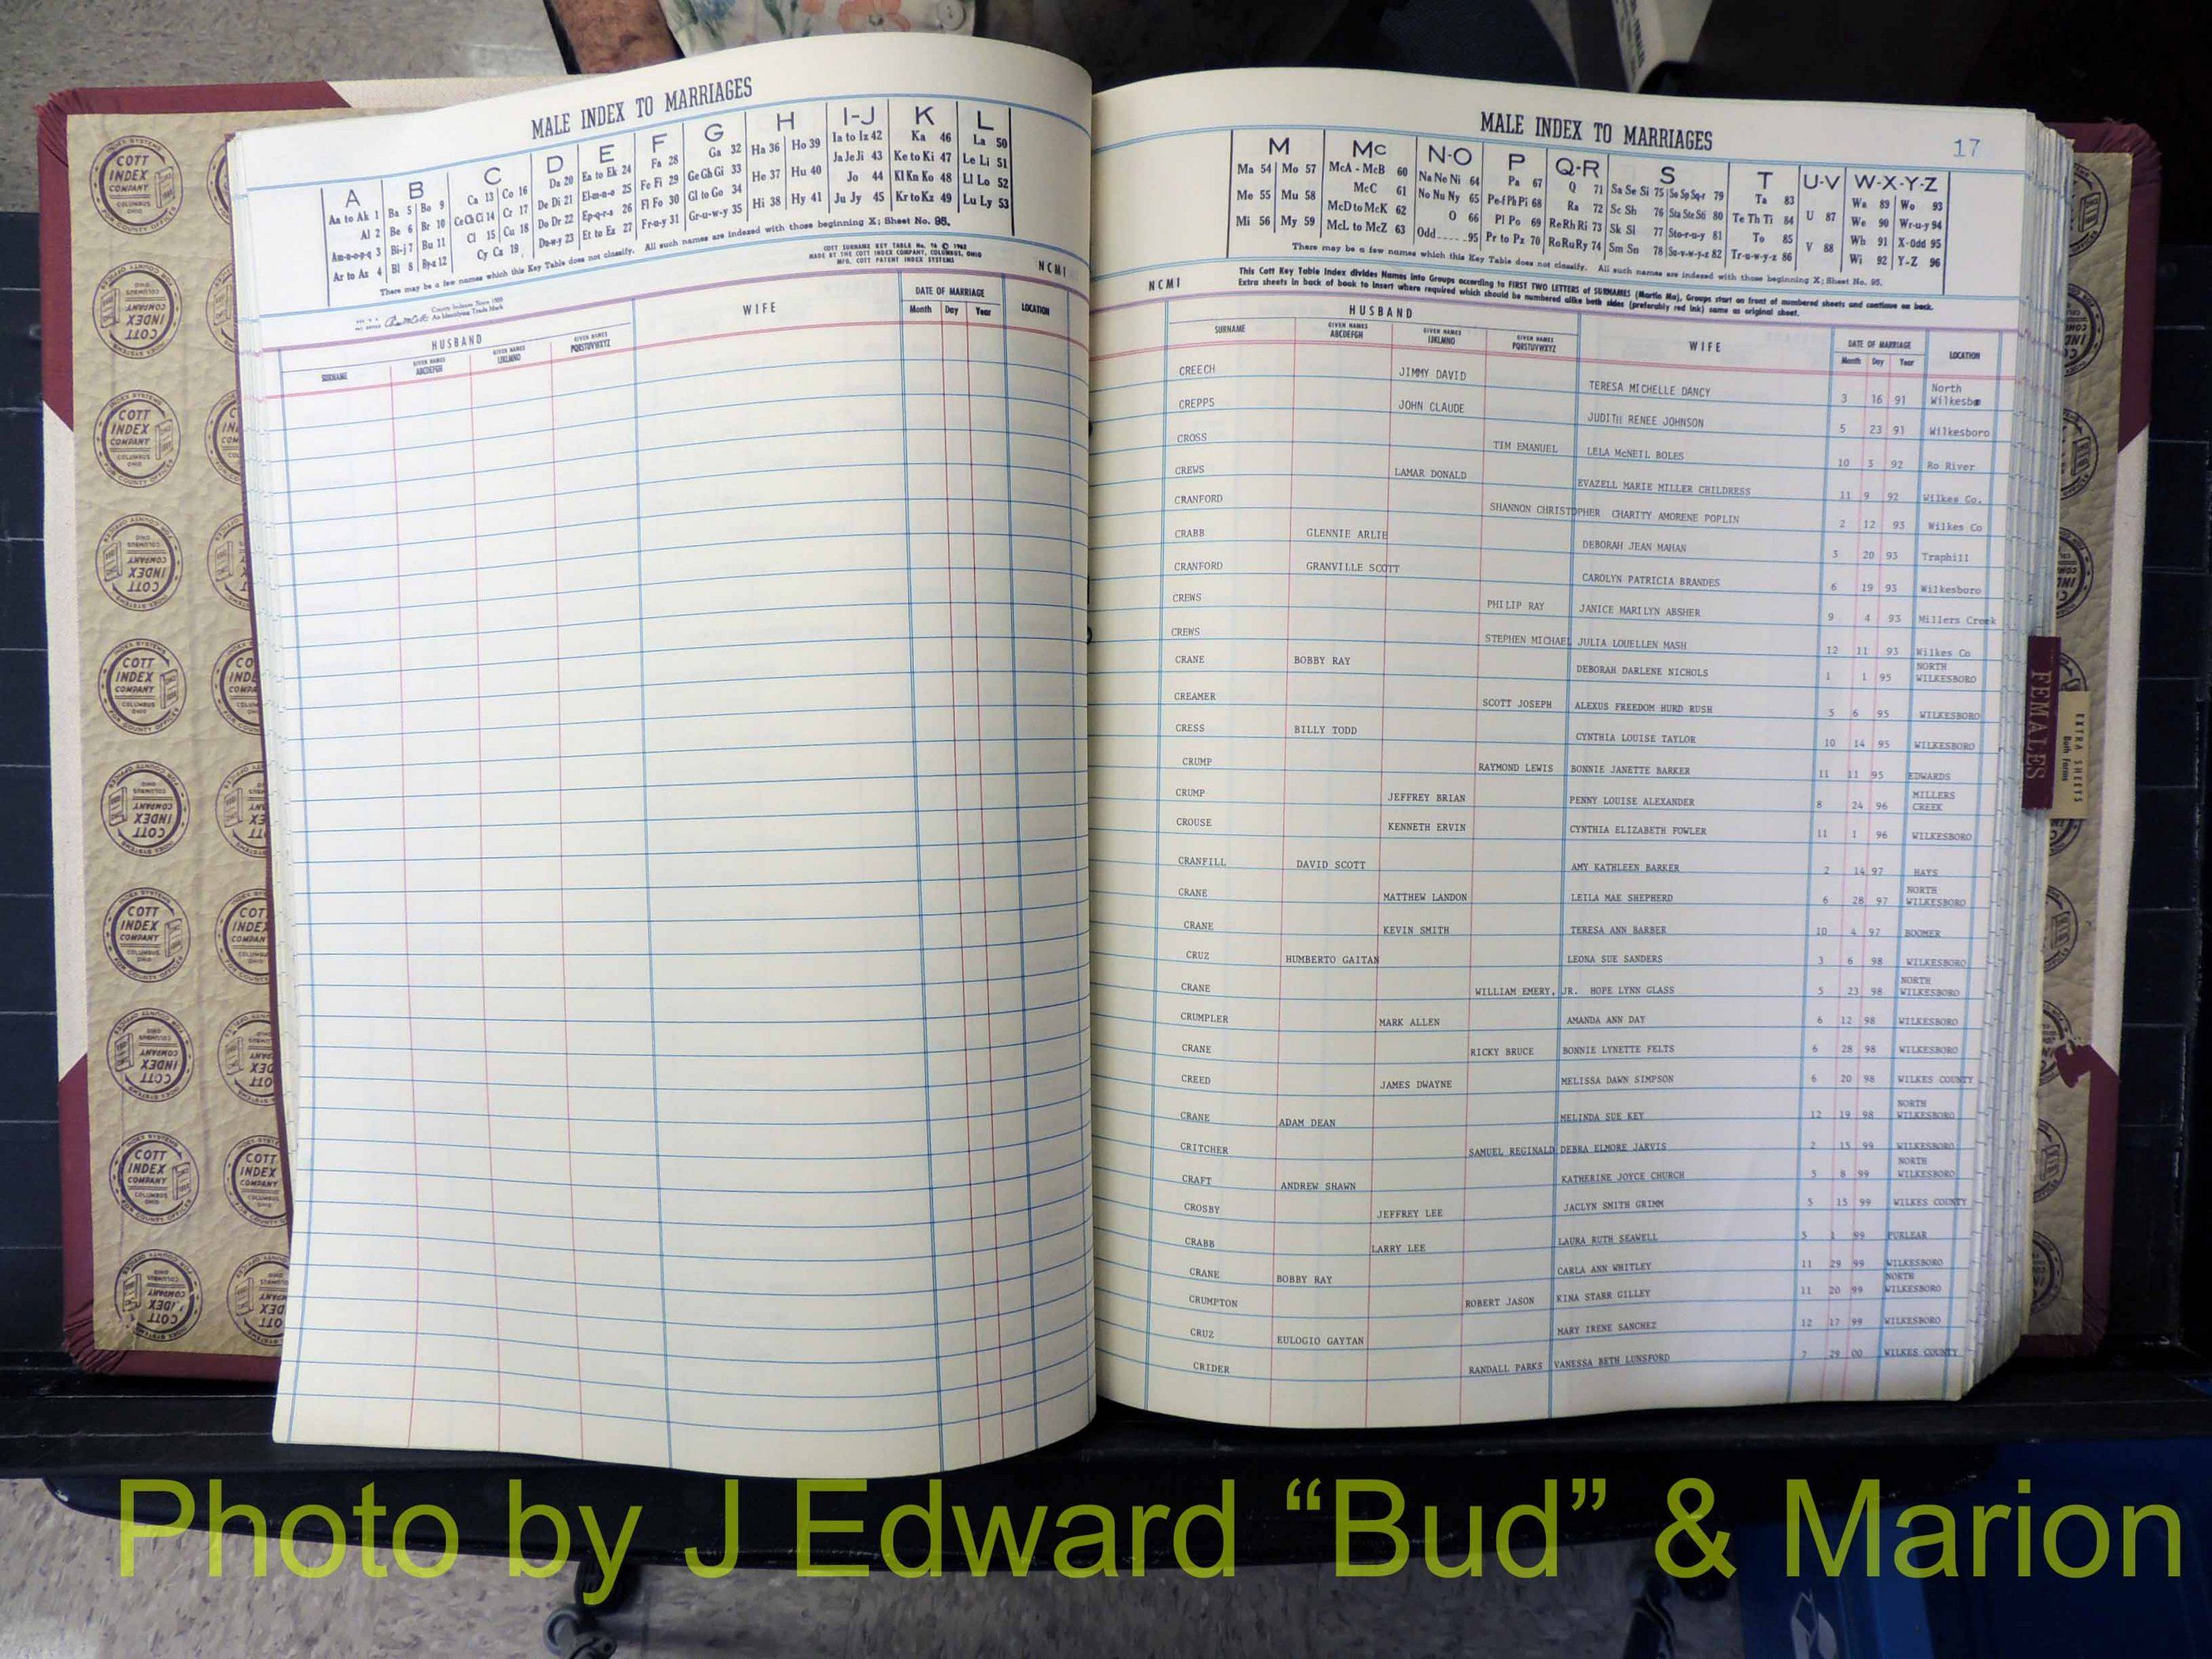 MALE INDEX TO MARRIAGES
A B C D E F G H I-J K L
Aa to Ak 1 Ba 5 Bo 9 Ca 13 Co 16 Da 20 Ea to Ek 24 Fa 28 Ga 32 Ha 36 Ho 39 Ia to Iz 42 Ka 46 La 50
Al 2 Be 6 Br 10 Ce Ch Ci 14 Cr 17 De Di 21 El-m-n-o 25 Fe Fi 29 Ge Gh Gi 33 He 37 Hu 40 Ja Je Ji 43 Ke to Ki 47 Le Li 51
Am-n-o-p-q 3 Bi-j 7 Bu 11 Cl 15 Cu 18 Do Dr 22 Ep-q-r-s 26 Fl Fo 30 Gl to Go 34 Hi 38 Hy 41 Jo 44 Kl Kn Ko 48 Ll Lo 52
Ar to Az 4 Bl 8 By-z 12 Cy Cz 19 Du-w-y 23 Et to Ez 27 Fr-u-y 31 Gr-u-w-y 35 Ju Jy 45 Kr to Kz 49 Lu Ly 53
There may be a few names which this Key Table does not classify. All such names are indexed with those beginning X; Sheet No. 95.
COTT SURNAME KEY TABLE No. 96 © 1962
MADE BY THE COTT INDEX COMPANY, COLUMBUS, OHIO
MFG. COTT PATENT INDEX SYSTEMS
NCMI
County Indexes Since 1900
An Identifying Trade Mark
HUSBAND WIFE DATE OF MARRIAGE LOCATION
SURNAME GIVEN NAMES ABCDEFGH GIVEN NAMES IJKLMNO GIVEN NAMES PQRSTUVWXYZ Month Day Year
MALE INDEX TO MARRIAGES 17
M Mc N-O P Q-R S T U-V W-X-Y-Z
Ma 54 Mo 57 McA - McB 60 Na Ne Ni 64 Pa 67 Q 71 Sa Se Si 75 So Sp Sq-r 79 Ta 83 Wa 89 Wo 93
Me 55 Mu 58 McC 61 No Nu Ny 65 Pe-f Ph Pi 68 Ra 72 Sc Sh 76 Sta Ste Sti 80 Te Th Ti 84 U 87 We 90 Wr-u-y 94
Mi 56 My 59 McD to McK 62 O 66 Pl Po 69 Re Rh Ri 73 Sk Sl 77 Sto-r-u-y 81 To 85 Wh 91 X-Odd 95
McL to McZ 63 Odd 95 Pr to Pz 70 Ro Ru Ry 74 Sm Sn 78 Su-v-w-y-z 82 Tr-u-w-y-z 86 V 88 Wi 92 Y-Z 96
There may be a few names which this Key Table does not classify. All such names are indexed with those beginning X; Sheet No. 95.
NCMI
This Cott Key Table Index divides Names into Groups according to FIRST TWO LETTERS of SURNAMES (Martin Ma), Groups start on front of numbered sheets and continue on back.
Extra sheets in back of book to insert where required which should be numbered alike both sides (preferably red ink) same as original sheet.
HUSBAND WIFE DATE OF MARRIAGE LOCATION
SURNAME GIVEN NAMES ABCDEFGH GIVEN NAMES IJKLMNO GIVEN NAMES PQRSTUVWXYZ Month Day Year
CREECH JIMMY DAVID TERESA MICHELLE DANCY 3 16 91 North Wilkesb
CREPPS JOHN CLAUDE JUDITH RENEE JOHNSON 5 23 91 Wilkesboro
CROSS TIM EMANUEL LELA McNEIL BOLES 10 3 92 Ro River
CREWS LAMAR DONALD EVAZELL MARIE MILLER CHILDRESS 11 9 92 Wilkes Co.
CRANFORD SHANNON CHRISTOPHER CHARITY AMORENE POPLIN 2 12 93 Wilkes Co
CRABB GLENNIE ARLIE DEBORAH JEAN MAHAN 3 20 93 Traphill
CRANFORD GRANVILLE SCOTT CAROLYN PATRICIA BRANDES 6 19 93 Wilkesboro
CREWS PHILIP RAY JANICE MARILYN ABSHER 9 4 93 Millers Creek
CREWS STEPHEN MICHAEL JULIA LOUELLEN MASH 12 11 93 Wilkes Co
CRANE BOBBY RAY DEBORAH DARLENE NICHOLS 1 1 95 NORTH WILKESBORO
CREAMER SCOTT JOSEPH ALEXUS FREEDOM HURD RUSH 5 6 95 WILKESBORO
CRESS BILLY TODD CYNTHIA LOUISE TAYLOR 10 14 95 WILKESBORO
CRUMP RAYMOND LEWIS BONNIE JANETTE BARKER 11 11 95 EDWARDS
CRUMP JEFFREY BRIAN PENNY LOUISE ALEXANDER 8 24 96 MILLERS CREEK
CROUSE KENNETH ERVIN CYNTHIA ELIZABETH FOWLER 11 1 96 WILKESBORO
CRANFILL DAVID SCOTT AMY KATHLEEN BARKER 2 14 97 HAYS
CRANE MATTHEW LANDON LEILA MAE SHEPHERD 6 28 97 NORTH WILKESBORO
CRANE KEVIN SMITH TERESA ANN BARBER 10 4 97 BOOMER
CRUZ HUMBERTO GAITAN LEONA SUE SANDERS 3 6 98 WILKESBORO
CRANE WILLIAM EMERY, JR. HOPE LYNN GLASS 5 23 98 NORTH WILKESBORO
CRUMPLER MARK ALLEN AMANDA ANN DAY 6 12 98 WILKESBORO
CRANE RICKY BRUCE BONNIE LYNETTE FELTS 6 28 98 WILKESBORO
CREED JAMES DWAYNE MELISSA DAWN SIMPSON 6 20 98 WILKES COUNTY
CRANE ADAM DEAN MELINDA SUE KEY 12 19 98 NORTH WILKESBORO
CRITCHER SAMUEL REGINALD DEBRA ELMORE JARVIS 2 15 99 WILKESBORO
CRAFT ANDREW SHAWN KATHERINE JOYCE CHURCH 5 8 99 NORTH WILKESBORO
CROSBY JEFFREY LEE JACLYN SMITH GRIMM 5 15 99 WILKES COUNTY
CRABB LARRY LEE LAURA RUTH SEAWELL 5 1 99 PURLEAR
CRANE BOBBY RAY CARLA ANN WHITLEY 11 29 99 WILKESBORO
CRUMPTON ROBERT JASON KINA STARR GILLEY 11 20 99 NORTH WILKESBORO
CRUZ EULOGIO GAYTAN MARY IRENE SANCHEZ 12 17 99 WILKESBORO
CRIDER RANDALL PARKS VANESSA BETH LUNSFORD 7 29 00 WILKES COUNTY
FEMALES
EXTRA SHEETS
Both Forms
COTT INDEX COMPANY COLUMBUS OHIO
INDEX SYSTEMS FOR COUNTY OFFICES
Photo by J Edward “Bud” & Marion